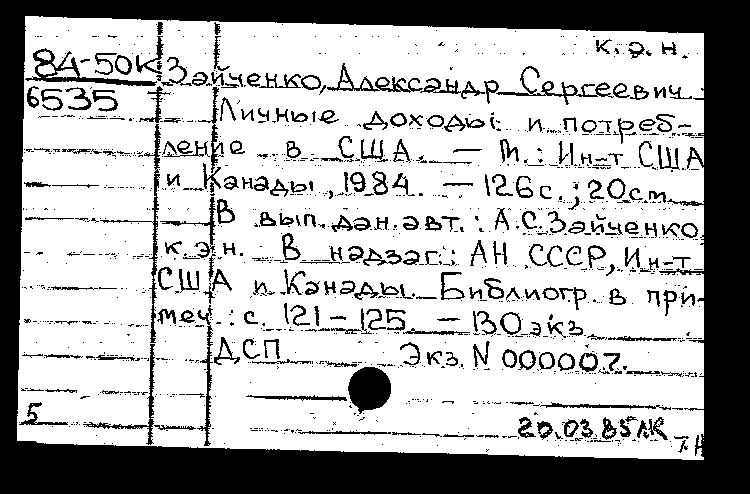 к.э.н.
84-50К Зайченко, Александр Сергеевич.
6535 Личные доходы и потреб-
ление в США. — М.: Ин-т США
и Канады, 1984. — 126с.; 20см.
В вып.дан.авт.: А.С.Зайченко
к.э.н. В надзаг.: АН СССР, Ин-т
США и Канады. Библиогр. в при-
меч.: с. 121 – 125. — 130экз.
ДСП Экз. N 000007.
5 20.03.85ЛК